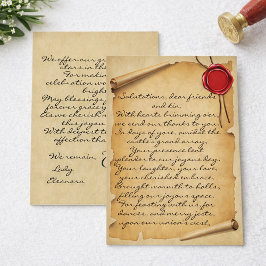 We offer our gr
stars in th
For making
celebration wo
brigh
May blessings,
forever grace y
as we cherish
this joyou
With deepest
affection tha
We remain,
Lady
Eleanora
Salutations, dear friends
and kin,
With hearts brimming over,
we send our thanks to you.
In days of yore, amidst the
castle's grand array,
Your presence lent
splendor to our joyous day.
Your laughter, your love,
your cherished embrace,
Brought warmth to halls,
filling our joyous space.
For feasting with us, for
dances, and merry jests
upon our union's crest,